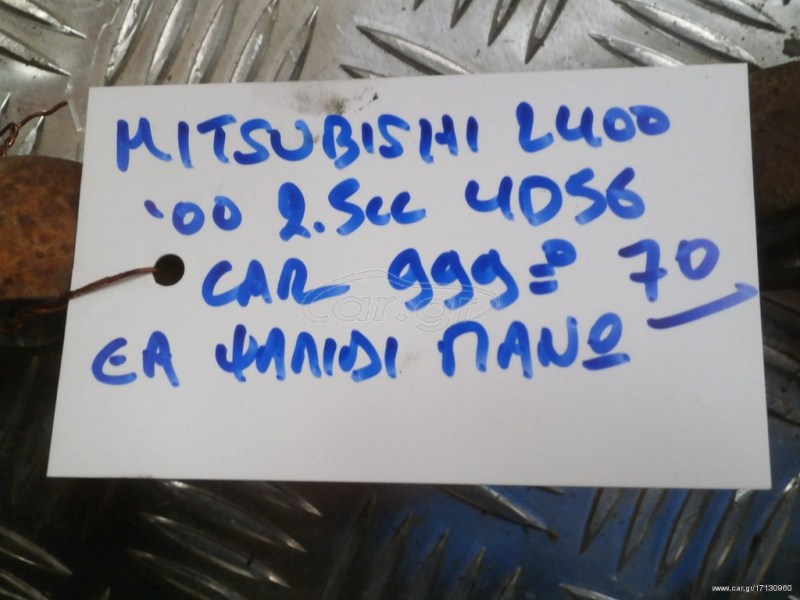 MITSUBISHI L400
'00 2.5cc 4D56
CAR 999= 70
ΕΑ ΨΑΛΙΔΙ ΠΑΝΩ
car.gr
www.car.gr/17130960